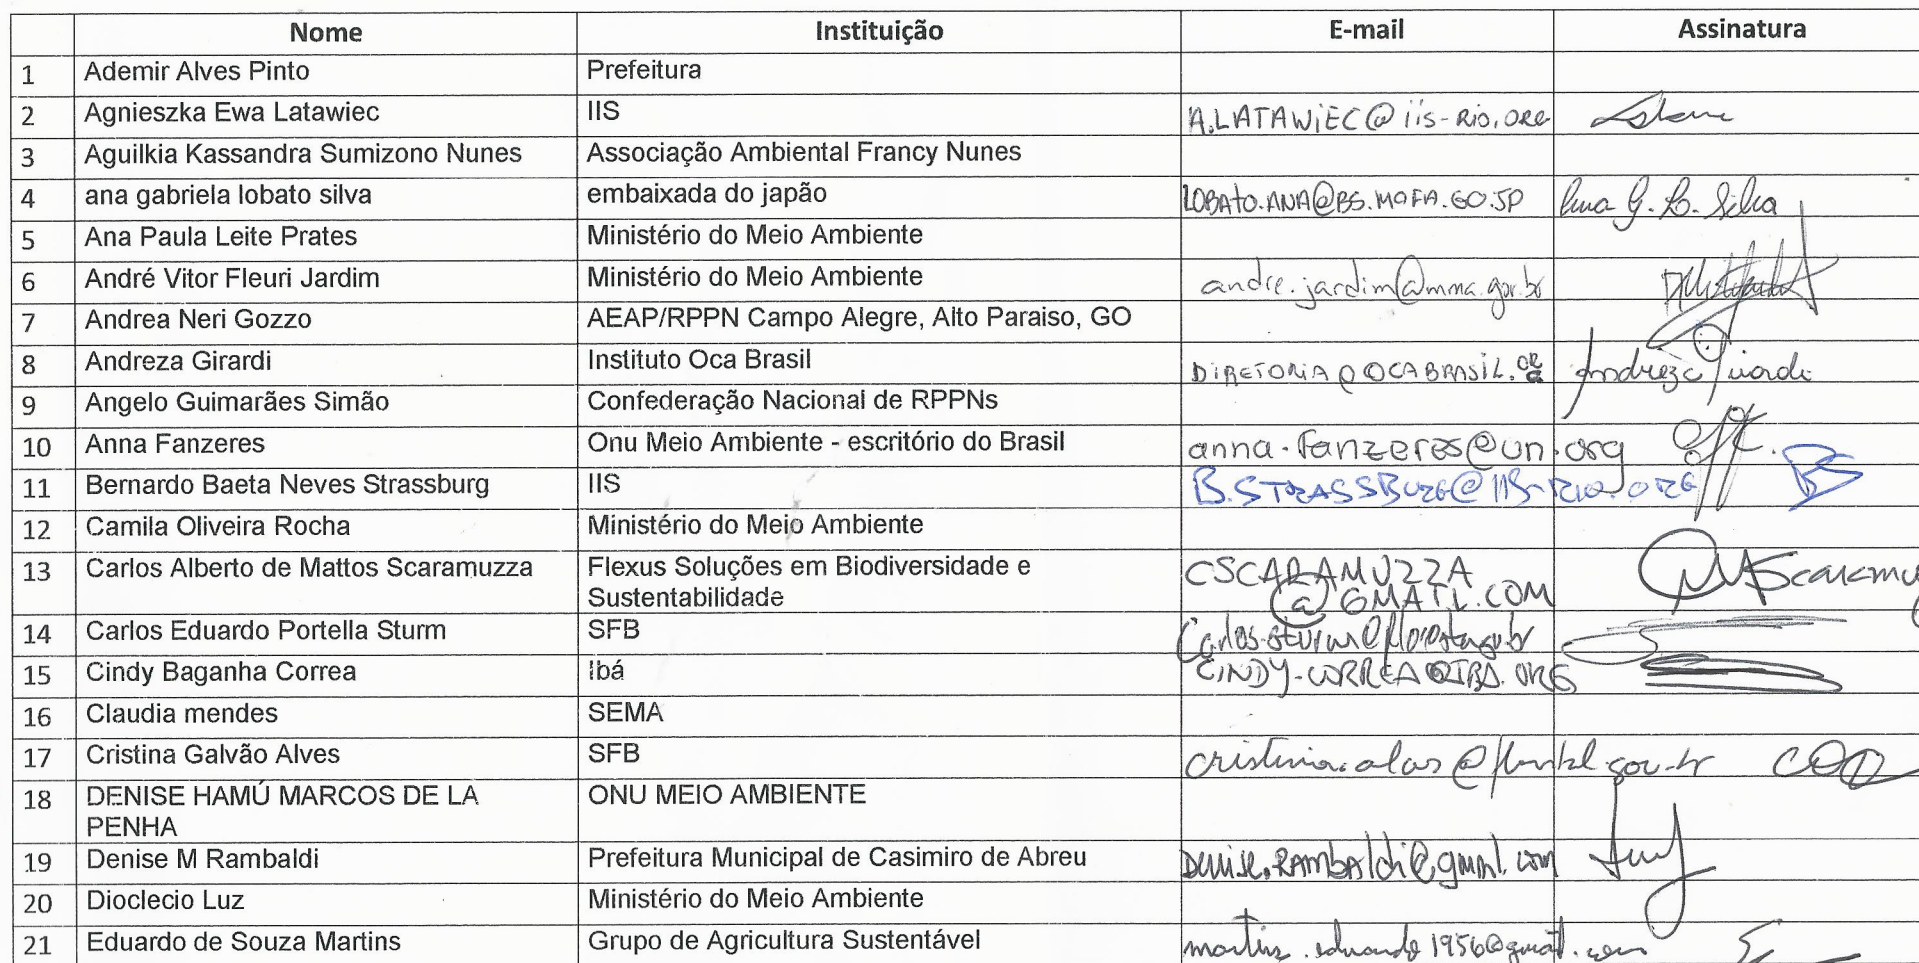 Nome Instituição E-mail Assinatura
1 Ademir Alves Pinto Prefeitura
2 Agnieszka Ewa Latawiec IIS A.LATAWIEC@iis-RIO.ORG
3 Aguilkia Kassandra Sumizono Nunes Associação Ambiental Francy Nunes
4 ana gabriela lobato silva embaixada do japão LOBATO.ANA@BS.MOFA.GO.JP Ana G. L. Silva
5 Ana Paula Leite Prates Ministério do Meio Ambiente
6 André Vitor Fleuri Jardim Ministério do Meio Ambiente andre.jardim@mma.gov.br
7 Andrea Neri Gozzo AEAP/RPPN Campo Alegre, Alto Paraiso, GO
8 Andreza Girardi Instituto Oca Brasil DIRETORIA@OCABRASIL.ORG Andreza Girardi
9 Angelo Guimarães Simão Confederação Nacional de RPPNs
10 Anna Fanzeres Onu Meio Ambiente - escritório do Brasil anna.fanzeres@un.org
11 Bernardo Baeta Neves Strassburg IIS B.STRASSBURG@IIS-RIO.ORG
12 Camila Oliveira Rocha Ministério do Meio Ambiente
13 Carlos Alberto de Mattos Scaramuzza Flexus Soluções em Biodiversidade e CSCARAMUZZA
Sustentabilidade @GMAIL.COM
14 Carlos Eduardo Portella Sturm SFB
15 Cindy Baganha Correa Ibá CINDY.CORREA@IBA.ORG
16 Claudia mendes SEMA
17 Cristina Galvão Alves SFB
18 DENISE HAMÚ MARCOS DE LA ONU MEIO AMBIENTE
PENHA
19 Denise M Rambaldi Prefeitura Municipal de Casimiro de Abreu Denise.RAMBAldi@gmail.com
20 Dioclecio Luz Ministério do Meio Ambiente
21 Eduardo de Souza Martins Grupo de Agricultura Sustentável martins.eduardo1956@gmail.com